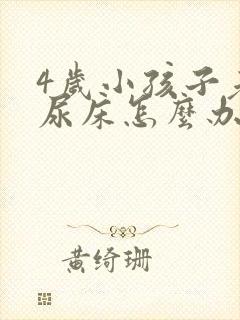 4歲小孩子老
尿床怎麼办
黄绮珊